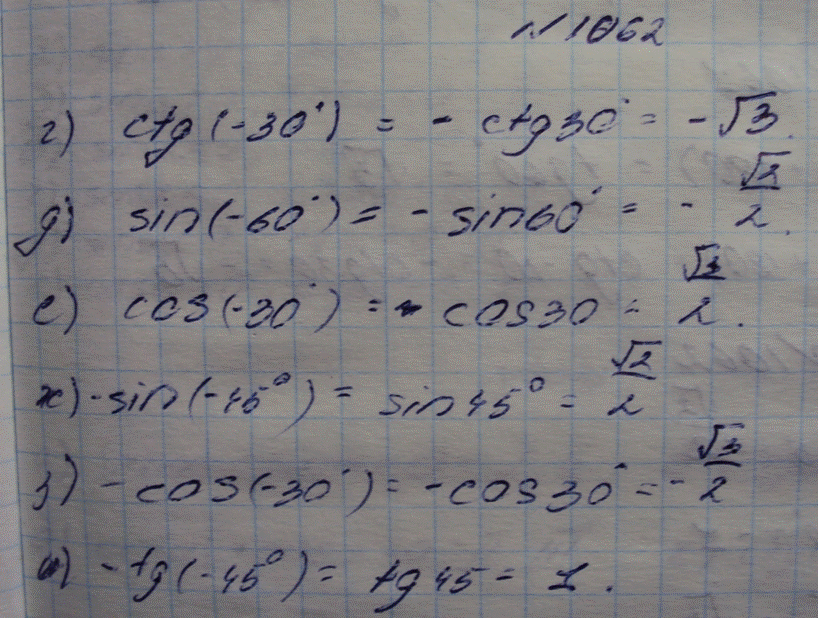 №1062
г) ctg(-30°) = - ctg30° = -√3.
д) sin(-60°) = - sin60° = - √2/2.
е) cos(-30°) = cos30 = √3/2.
ж) -sin(-45°) = sin45° = √2/2
з) -cos(-30°) = -cos30° = -√3/2
и) -tg(-45°) = tg45 = 1.